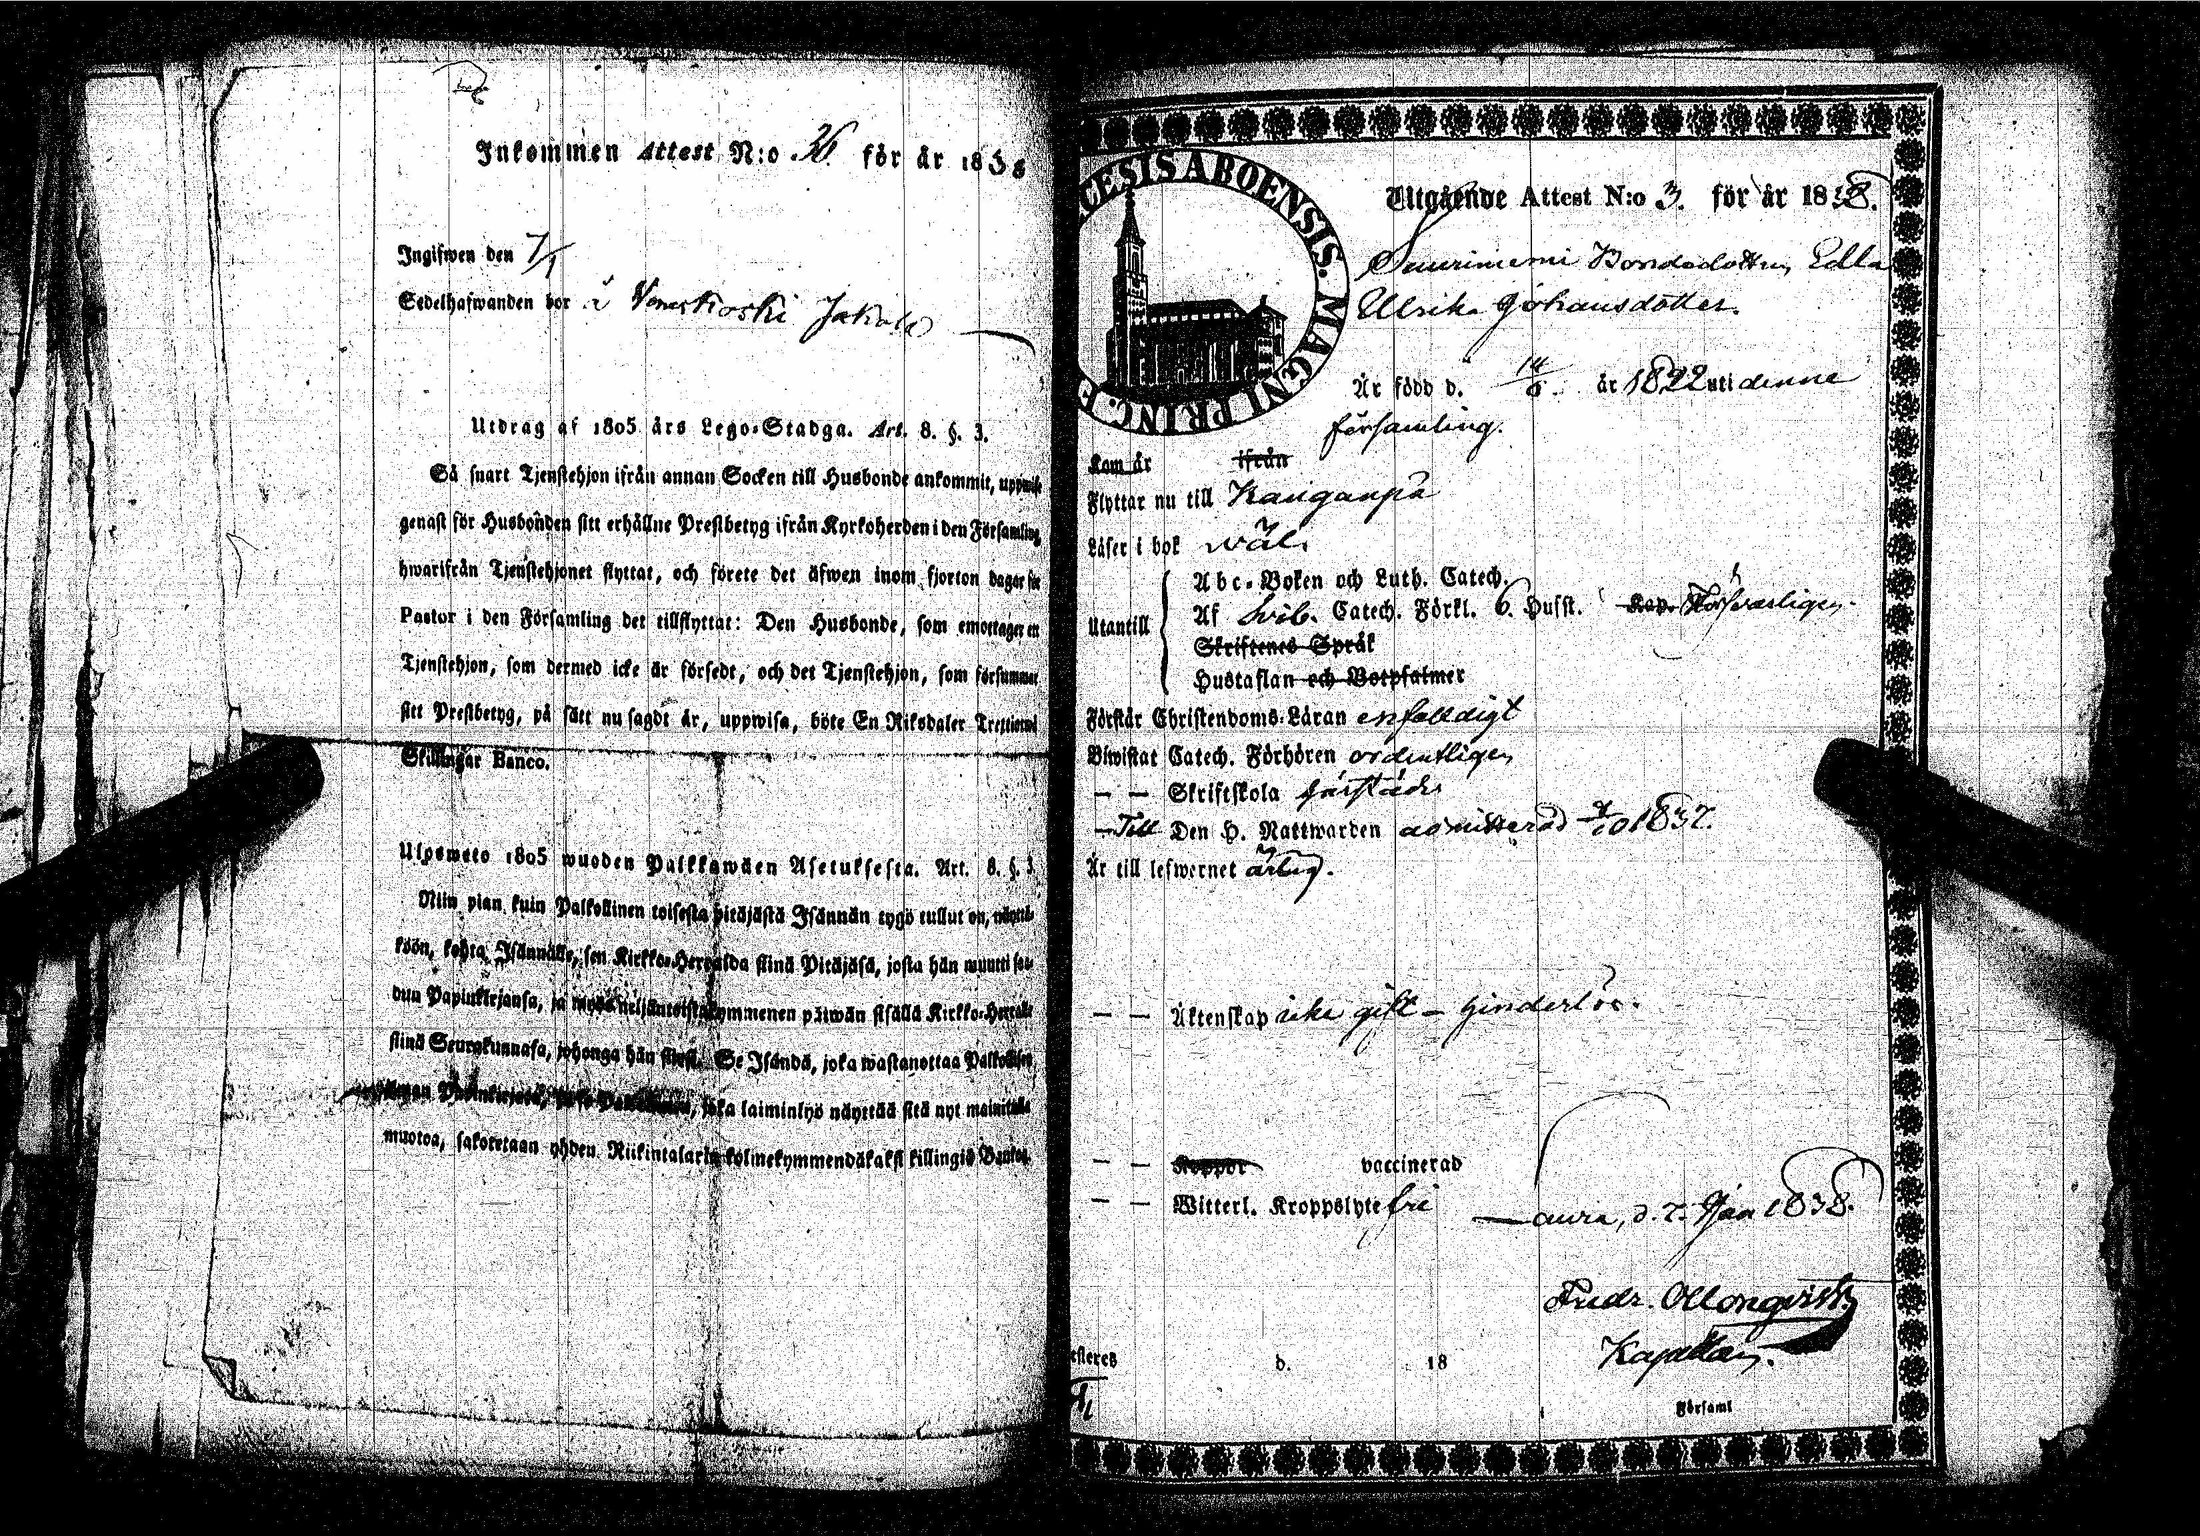 Inkommen Attest N:o 36. för år 1838
Ingifwen den 7/1
Sedelhafwanden bor i Veneskoski Jakola
Utdrag af 1805 års Lego-Stadga. Art. 8. §. 3.
Så snart Tjenstehjon ifrån annan Socken till Husbonde ankommit, uppwise
genast för Husbonden sitt erhållne Prestbetyg ifrån Kyrkoherden i den Församling
hwarifrån Tjenstehjonet flyttat, och förete det äfwen inom fjorton dagar för
Pastor i den Församling det tillflyttat: Den Husbonde, som emottager ett
Tjenstehjon, som dermed icke är försedt, och det Tjenstehjon, som försummar
sitt Prestbetyg, på sätt nu sagdt är, uppwisa, böte En Riksdaler Trettiotwå
Skillingar Banco.
Ulosweto 1805 wuoden Palkkawäen Asetuksesta. Art. 8. §. 3.
Niin pian kuin Palkollinen toisesta pitäjästä Isännän tygö tullut on, näyttä-
köön, kohta Isännälle, sen Kirkko-Herralda siinä Pitäjäsä, josta hän muutti saa-
dun Papinkirjansa, ja myös neljäntoistakymmenen päiwän sisällä Kirkko-Herralle
siinä Seurakunnasa, johonga hän siirsi. Se Isändä, joka wastanottaa Palkollisen
ilman Papinkirjata, ja se Palkollinen, joka laiminlyö näyttää sitä nyt mainitulla
muotoa, sakotetaan yhden Riikintalarin kolmekymmendäkaksi killingiä Bankos.
DIOECESIS ABOENSIS. MAGNI PRINC. F
Utgående Attest N:o 3. för år 1838.
Suurimemi Bondedottren, Edla
Ulrika Johansdotter.
Är född d. 14/6. år 1822 uti denne
församling.
Kom år ifrån
Flyttar nu till Kanganpä
Läser i bok wäl.
Abc-Boken och Luth. Catech.
Utantill Af Svib. Catech. Förkl. 6. Husst. Kap. Försvarligen.
Skriftenes Språk
Hustaflan och Botpsalmer
Förstår Christendoms-Läran enfaldigt
Biwistat Catech. Förhören ordentligen
— — Skriftskola härstädes
— Till Den H. Nattwarden admitterad 8/10 1837.
Är till lefwernet ärlig.
— — Äktenskap icke gift – hinderlös.
— — Koppor vaccinerad
— — Witterl. Kroppslyte fri
Laura, d. 7. Jan 1838.
Fredr. Ollonqvist
Kapellan.
d. 18
Församl